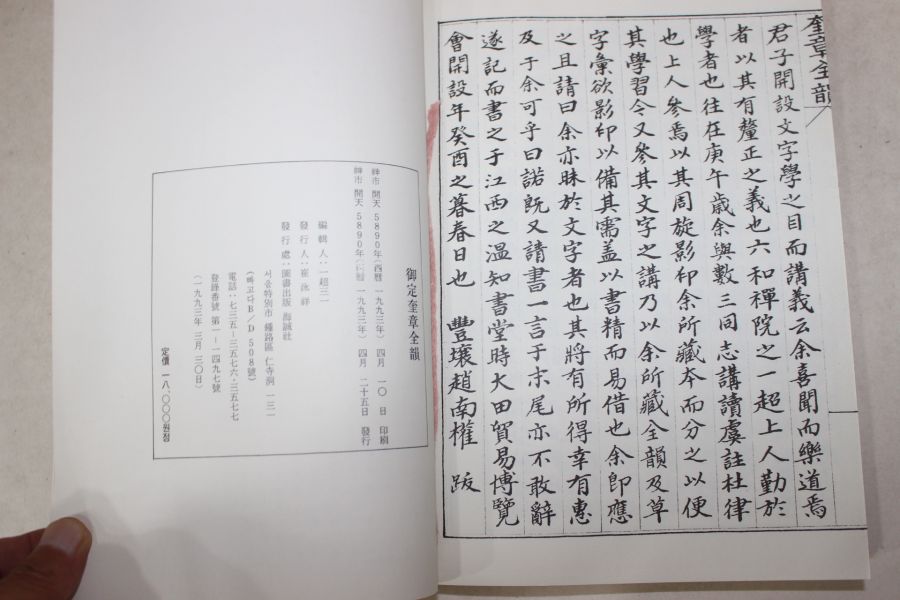 奎章全韻
君子開設文字學之目而講義云余喜聞而樂道焉
者以其有釐正之義也六和禪院之一超上人勤於
學者也往在庚午歲余與數三同志講讀虞註杜律
也上人參焉以其周旋影印余所藏本而分之以便
其學習今又參其文字之講乃以余所藏全韻及草
字彙欲影印以備其需盖以書精而易借也余卽應
之且請曰余亦昧於文字者也其將有所得幸有惠
及于余可乎曰諾旣又請書一言于末尾亦不敢辭
遂記而書之于江西之溫知書堂時大田貿易博覽
會開設年癸酉之暮春日也 豐壤趙南權 跋
御定奎章全韻
神市 開天 5890年(西曆 一九九三年) 四月 一〇日 印刷
神市 開天 5890年(西曆 一九九三年) 四月 二十五日 發行
編輯人:一超三一
發行人:崔 詳
發行處:圖書出版 海誠社
서울特別市 鍾路區 仁寺洞 一三一
(빠고다B/D 508號)
電話:七三五-三五七六·三五七七
登錄番號 第一-一四九七號
(一九九三年 三月 三〇日)
定價 一八,〇〇〇원정